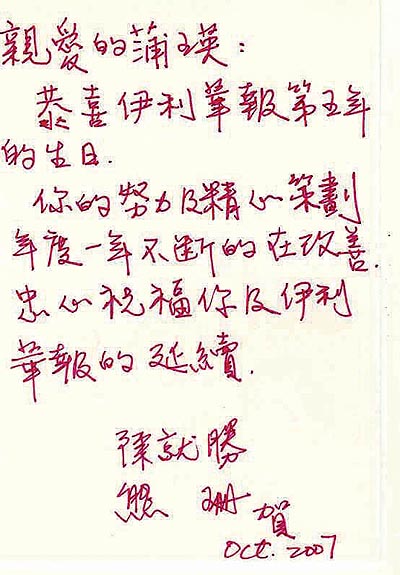 親愛的蒲玉英:
恭喜伊利華報第五年
的生日.
你的努力及精心策劃
年度一年不斷的在改善.
忠心祝福你及伊利
華報的延續.
陳就勝
熊 珊 賀
Oct. 2007